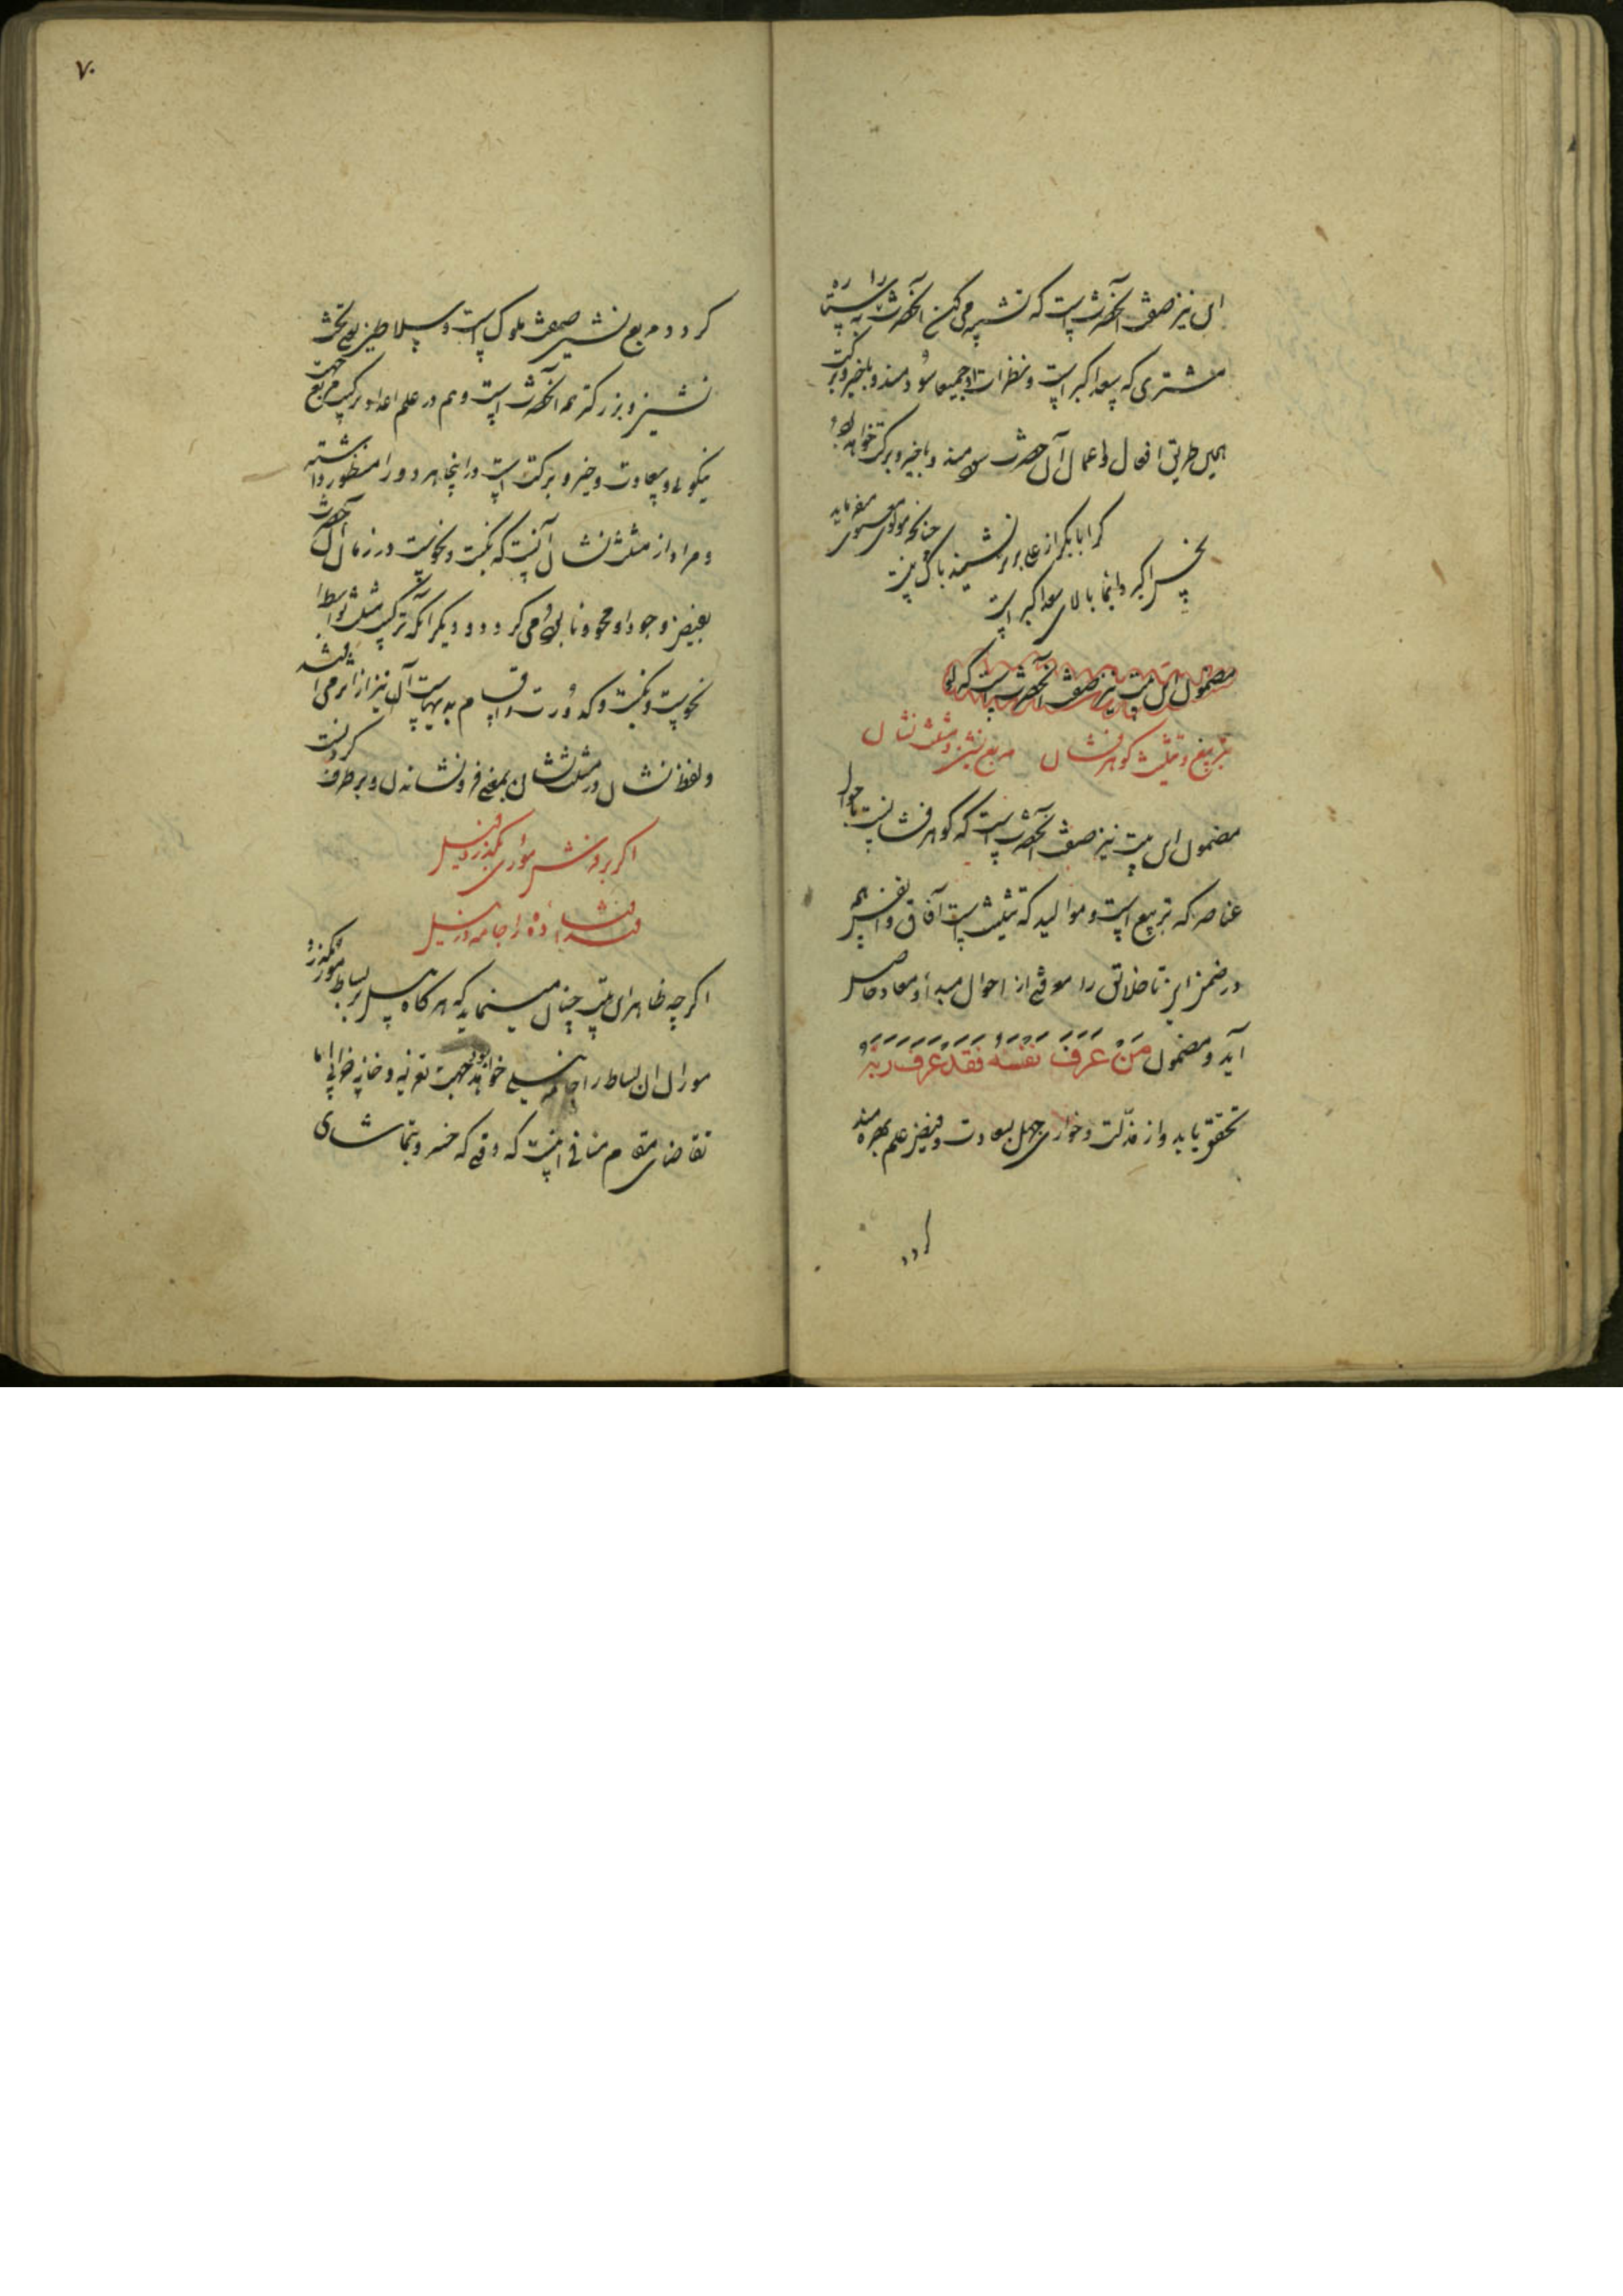 این نیز صفت آنحضرت است که تشبیه می کند آنحضرت را به ستاره
مشتری که سعد اکبر است و نظرات او جمیعا سودمند و با خیر و برکت
همین طریق افعال و اعمال آن حضرت سودمند و با خیر و برکت خواهد بود
چنانچه مولوی معنوی میفرماید
گر ابابکر از علی برتر نشیند باک نیست
نحس اکبر دایما بالای سعد اکبر است
مضمون این بیت نیز صفت آنحضرت است که او
بتربیع و تثلیث گوهر فشان مربع نشین و مثلث نشان
مضمون این بیت نیز صفت آنحضرت است که گوهر فشانیست باحوال
عناصر که تربیع است و موالید که تثلیث است آفاق و انفس هم
در ضمن این تا خلائق را موقع از احوال مبدأ و معاد حاصل
آید و مضمون مَنْ عَرَفَ نفسه فقد عرف ربّه
تحقق یابد و از مذلّت و خواری جهل بسعادت و فیض علم بهره مند
گردد
۷۰
گردد و مربع نشین صفت ملوک است و سلاطین بوقت تخت
نشینی و بزرگتر همه آنحضرت است و هم در علم اعداد ترکیب مربع جهت
نیکوئی و سعادت و خیر و برکت است در اینجا هر دو را منظور داشته
و مراد از مثلث نشان آنست که نکبت و نحوست در زمان آن حضرت
بفیض وجود او محو و نابود می گردد و دیگر آنکه ترکیب مثلث بواسطه
نحوست و نکبت و کدورت و اقسام بدیهاست آن نیز از اثر می افتد
و لفظ نشان در مثلث نشان بمعنی فرو نشاندن و برطرف کردنست
اگر بر فرش موری بگذرد پیل
فتد افتاده را جامه در نیل
اگرچه ظاهر این بیت چنان مینماید که هرگاه پیل بر بساط مور بگذرد
موران آن بساط را جامه نیلی خواهد بود جهت تعزیه و خانه خرابی اما
تقاضای مقام منافی اینست که وقتی که خسرو بتماشای